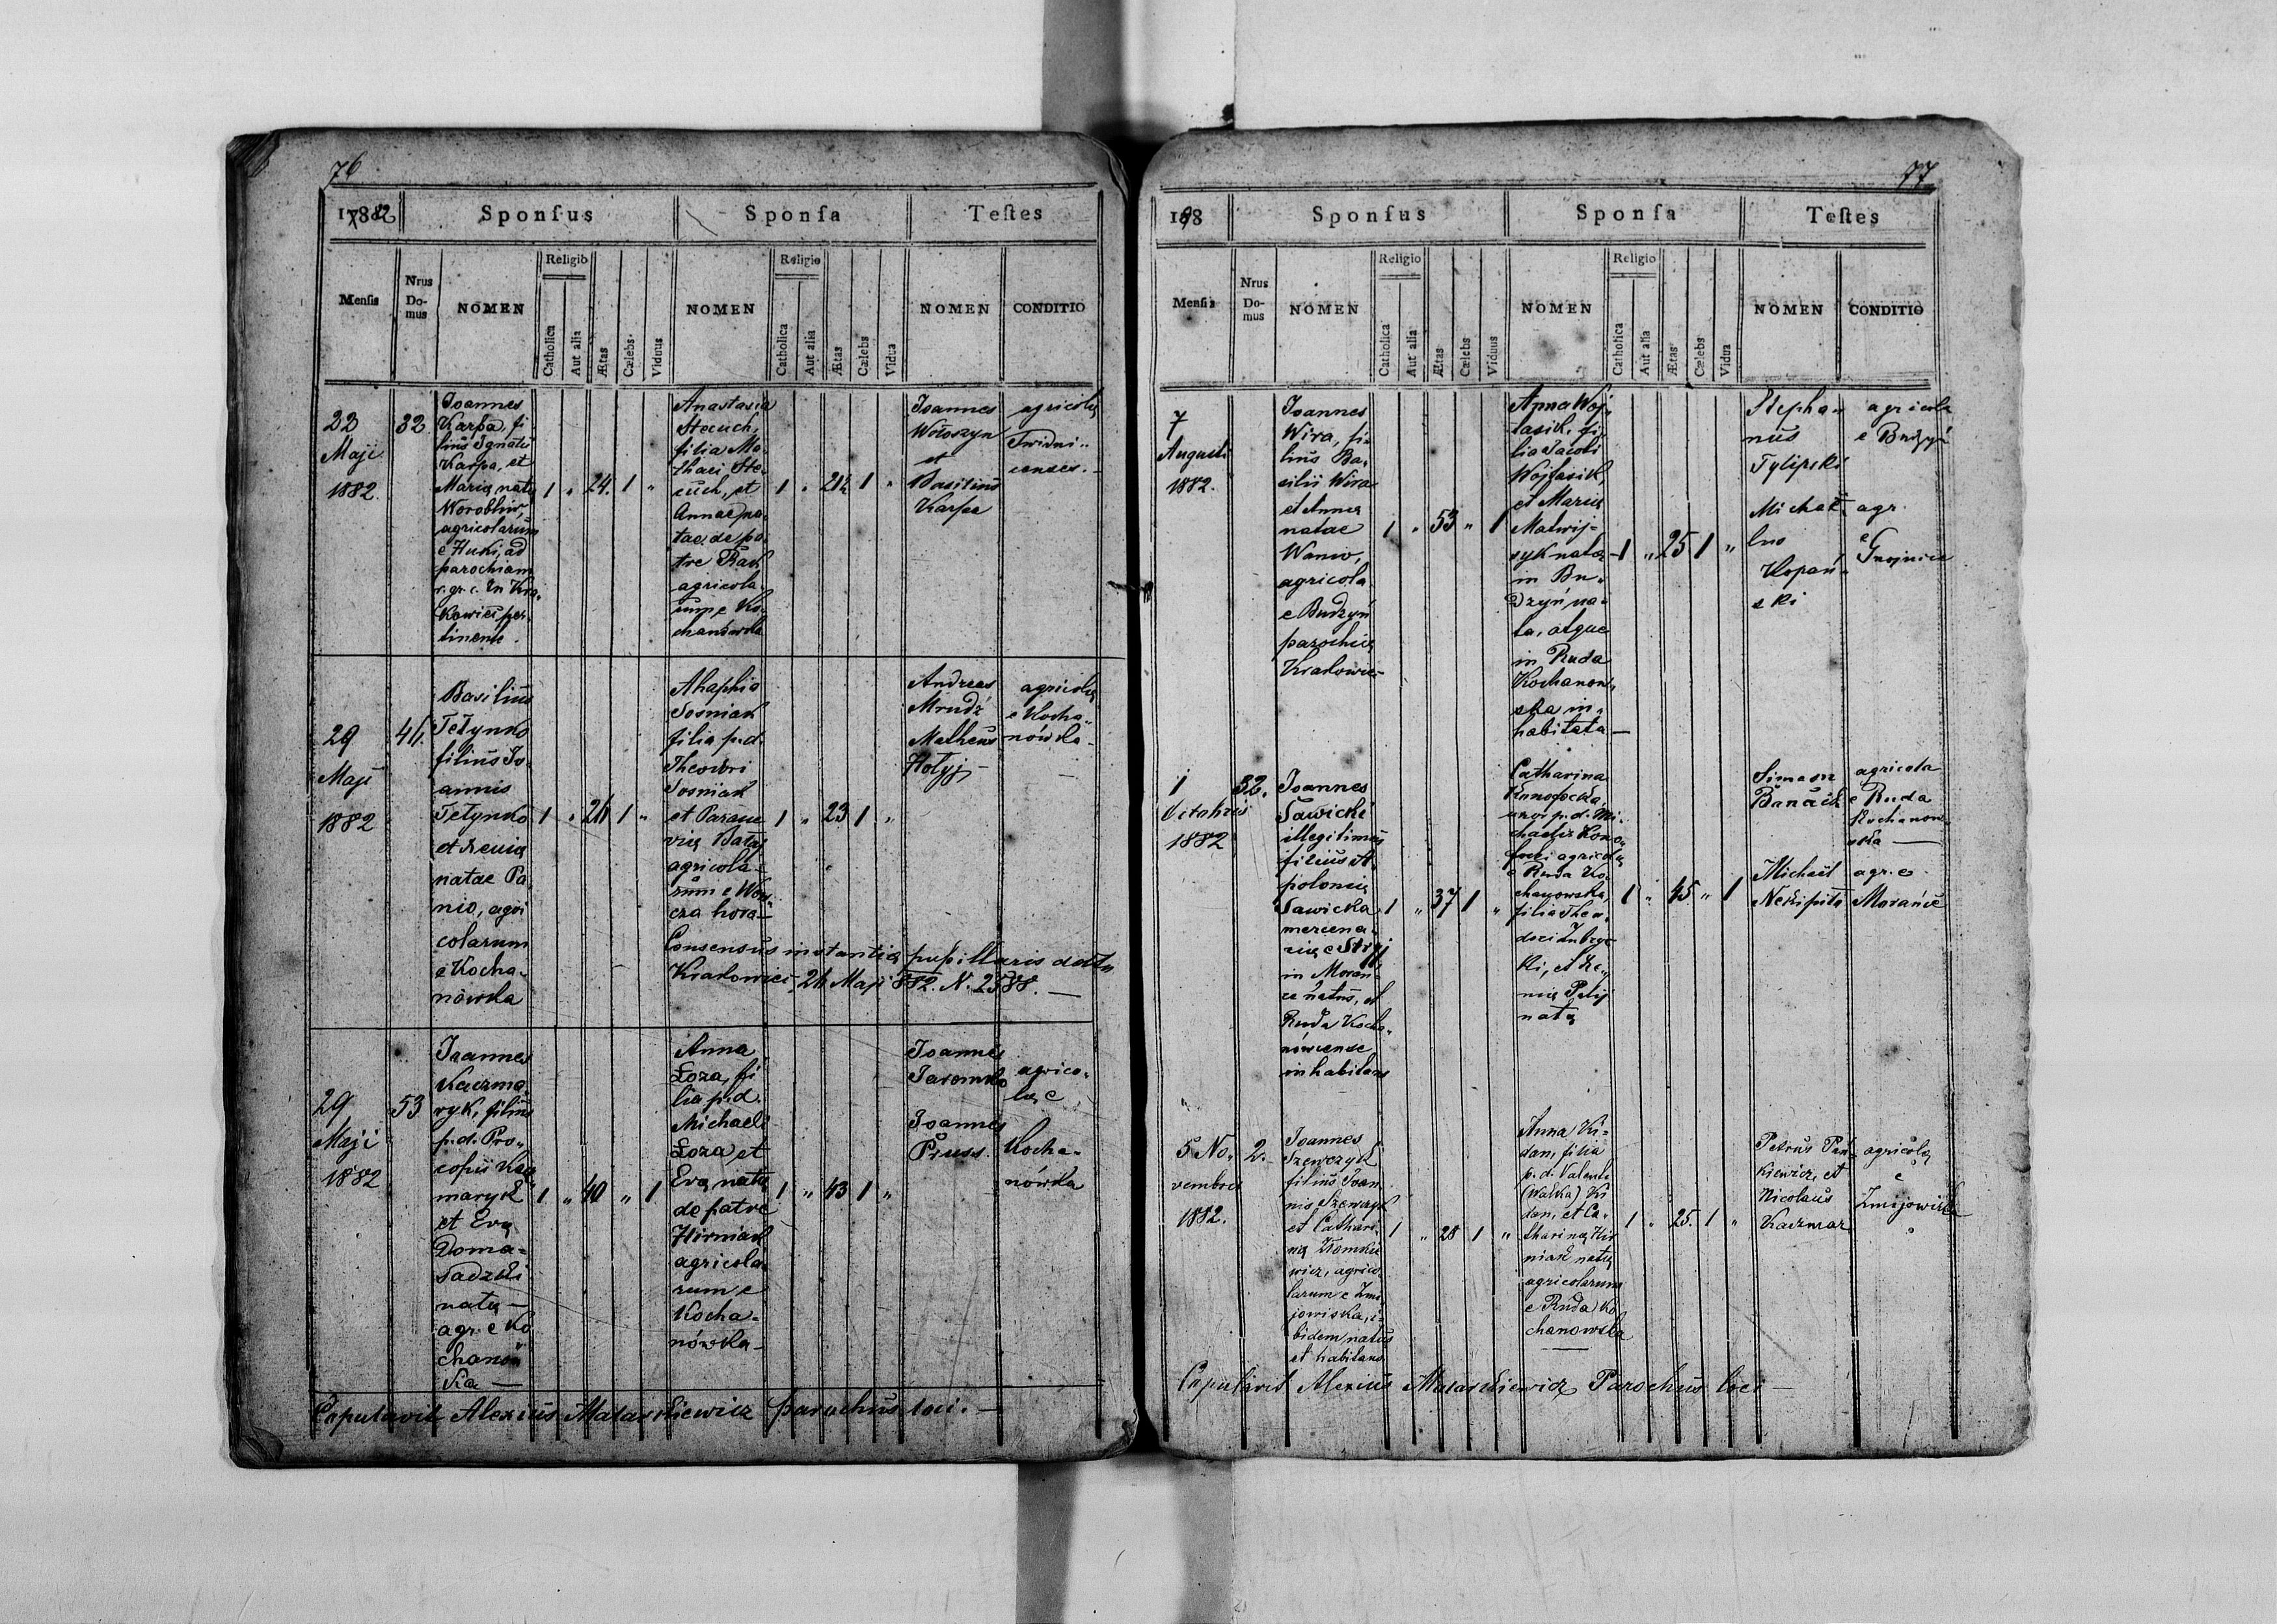 76
17882
Sponsus
Sponsa
Testes
Mensis
Nrus Do-mus
NOMEN
Religio
Catholica
Aut alia
Ætas
Cælebs
Viduus
NOMEN
Religio
Catholica
Aut alia
Ætas
Cælebs
Vidua
NOMEN
CONDITIO
22
Maji
1882.
32
Joannes
Karpa, fi
lius Ignatii
Karpa, et
Mariæ natæ
Worobliw,
agricolarum
e Huki, ad
parochiam
r. gr. c. in Kra-
kowiec per-
tinente.
1 „ 24. 1 „
Anastasia
Stecuch,
filia Ma-
thaei Ste-
cuch, et
Annae na-
tae de pa-
tre Rak
agricola-
rum e Ko-
chanówka
1 „ 21½ 1 „
Joannes
Wołoszyn
et
Basilius
Karpa
agricolæ
Świdni-
censes.
29
Maji
1882
41.
Basilius
Tetynko
filius Jo-
annis
Tetynko
et Xeniæ
natae Pa
nio, agri
colarum
e Kocha-
nówka
1 „ 26 1 „
Ahaphia
Sosniak
filia p.d.
Theodori
Sosniak
et Parasce
viæ Bałaj
agricola-
rum e Wol-
cza hora
1 „ 23 1 „
Andreas
Mrudź
Matheus
Hołyj
agricolæ
e Kocha-
nówka
Consensus instantiæ pupillaris ddto
Krakowiec 26 Maji 882. N. 2588.
29
Maji
1882
53
Joannes
Kaczma
ryk, filius
p.d. Pro-
copii Kacz
maryk
et Eva
Doma-
radzki
natæ
agr. e Ko
chanów
ka
1 „ 40 „ 1
Anna
Łoza, fi
lia p.d.
Michaeli
Łoza, et
Evæ natæ
de patre
Hirniak
agricola-
rum e
Kocha-
nówka
1 „ 43 1 „
Joannes
Jaremko
Joannes
Pruss.
agrico-
læ e
Kocha-
nówka
Copulavit Alexius Mataszkiewicz parochus loci.
77
188
Sponsus
Sponsa
Testes
Mensis
Nrus Do-mus
NOMEN
Religio
Catholica
Aut alia
Ætas
Cælebs
Viduus
NOMEN
Religio
Catholica
Aut alia
Ætas
Cælebs
Vidua
NOMEN
CONDITIO
7
Augusti
1882.
Joannes
Wira, fi-
lius Ba-
silii Wira
et Annæ
natae
Waniw,
agricola
e Budzyń
parochiæ
Krakowiec
1 „ 53 „ 1
Anna Woj-
tasik, fi-
lia Jacobi
Wojtasik,
et Mariæ
Matwij-
zyk natæ
in Bu-
dzyń na-
ta, atque
in Ruda
Kochanow-
ska in-
habitata
1 „ 25 1 „
Stepha-
nus
Tylipski
Michaë-
lus
Kopań-
ski
agricola
e Budzyń
agr.
e
Gnojnice
1
Octobris
1882
32.
Joannes
Sawicki
illegitimus
filius A-
poloniæ
Sawicka
mercena-
riæ e Stryj
in Morań-
ce natus, et
Ruda Kocha-
nowiense
inhabitans
1 „ 37 1 „
Catharina
Konopocka
uxor p.d. Mi-
chaelis Kono-
pocki agricolæ
e Ruda Ko-
chanowska
filia Theo-
dori Zubryc-
ki, et Xe-
niæ Petij
natæ
1 „ 45 „ 1
Simeon
Banaik
Michael
Nekipiło
agricola
e Ruda
Kochanow-
ska
agr. e
Morańce
5 No-
vembris
1882.
2.
Joannes
Szewczyk
filius Joan-
nis Szewczyk
et Cathari-
næ Tomkie
wicz, agrico-
larum e Żmi-
jowiska, i-
bidem natus
et habitans
1 „ 28 1 „
Anna Ki-
dan, filia
p.d. Valente
(Walka) Ki
dan, et Ca-
tharinæ Hir
niak natæ
agricolarum
e Ruda Ko
chanowska
1 „ 25. 1 „
Petrus Pań-
kiewicz, et
Nicolaus
Kaczmar
agricolæ
e
Żmijowiska
Copulavit Alexius Mataszkiewicz Parochus loci